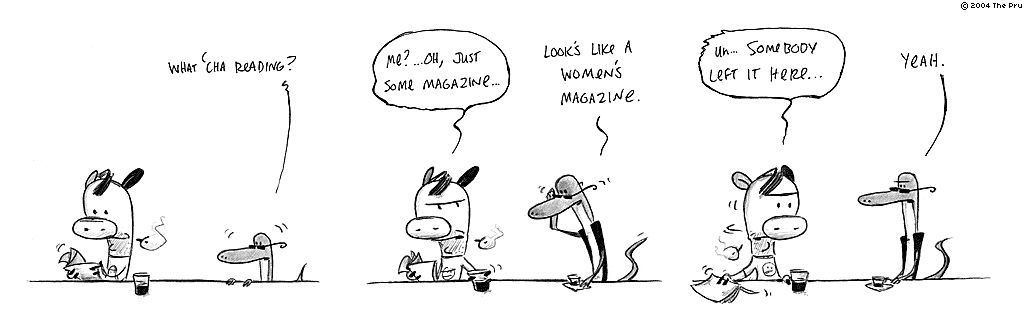 © 2004 The Pru
WHAT 'CHA READING?
Me? ...OH, JUST
SOME MAGAZINE...
LOOK'S LIKE A
WOMEN'S
MAGAZINE.
UH... SOMEBODY
LEFT IT HERE...
YEAH.